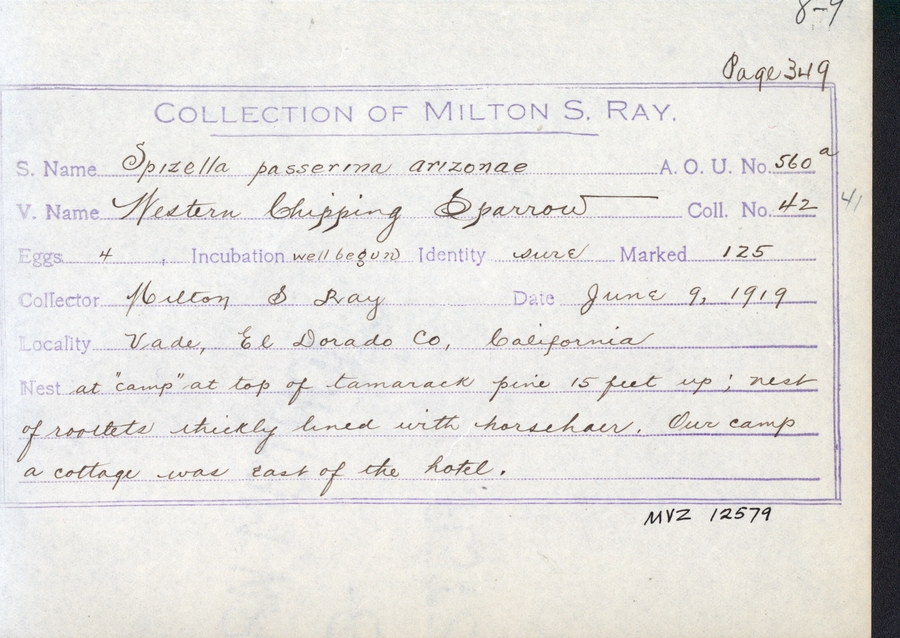 8-9
Page 349
COLLECTION OF MILTON S. RAY.
S. Name Spizella passerina arizonae A. O. U. No. 560a
V. Name Western Chipping Sparrow Coll. No. 42 41
Eggs 4 , Incubation well begun Identity sure Marked 125
Collector Milton S Ray Date June 9, 1919
Locality Vade, El Dorado Co, California
Nest at "camp" at top of tamarack pine 15 feet up; nest
of rootlets thickly lined with horsehair. Our camp
a cottage was east of the hotel.
MVZ 12579